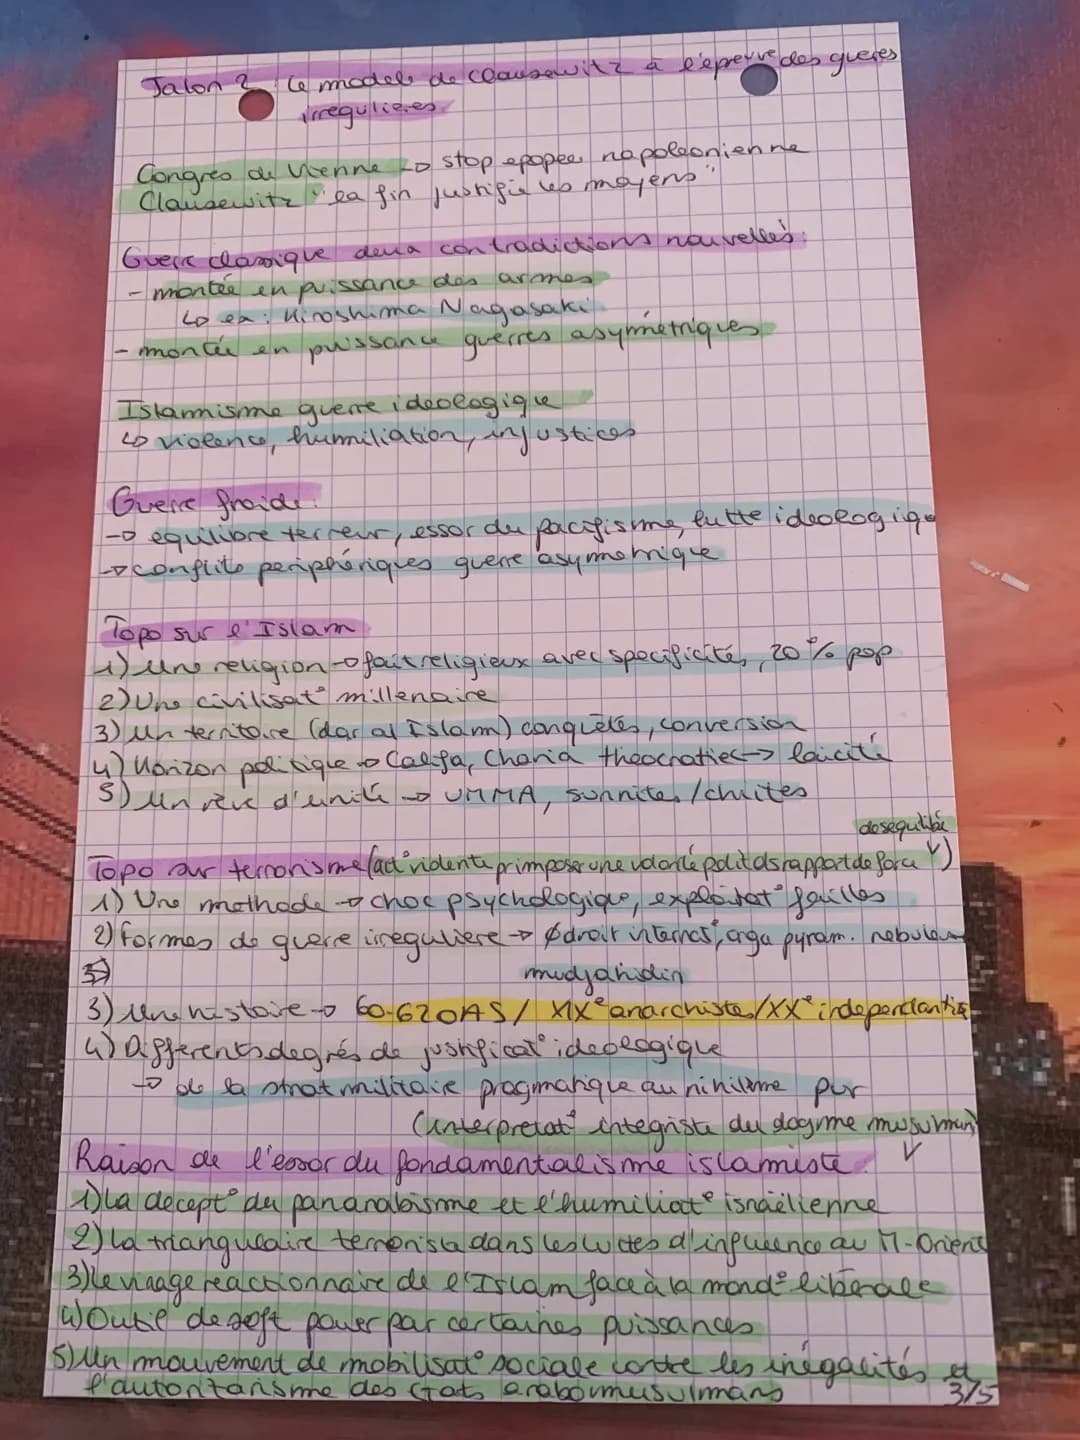 Jalon 2 : Le modele de Clausewitz a l'epreuve des gueres
irregulieres
Congres de Vienne -> stop epopee napoleonienne
Clausewitz "la fin justifie les moyens"
Guerre classique deux contradictions nouvelles:
- montée en puissance des armes
↳ ex: Hiroshima Nagasaki
- montée en puissance guerres asymétriques
Islamisme guerre ideologique
↳ violence, humiliation, injustices
Guerre froide:
-> equilibre terreur, essor du pacifisme, lutte ideologique
-> conflits periphériques guerre asymetrique
Topo sur l'Islam
1) Une religion -> fait religieux avec specificités, 20% pop
2) Une civilisat° millenaire
3) Un territoire (dar al Islam) conquêtes, conversion
4) Horizon politique -> Califa, Charia theocratie <-> laicité
5) Un rêve d'unité -> UMMA, sunnites/chiites
desequilibré
Topo sur terrorisme (act° violente pr imposer une volonté polit ds rapport de force v)
1) Une methode -> choc psychologique, exploitat° failles
2) formes de guerre irreguliere -> ∅ droit internat°, orga pyram. nebuleuse
3)
mudjahidin
3) Une histoire -> 60-62 OAS / XIXe anarchiste/XXe independantis
4) Differents degrés de justificat° ideologique
-> de la strat militaire pragmatique au nihilisme pur
(interpretat° integriste du dogme musulman)
Raison de l'essor du fondamentalisme islamiste: v
1) La decept° du panarabisme et l'humiliat° israélienne
2) La triangulaire terroriste dans les luttes d'influence au M-Orient
3) Le virage reactionnaire de l'Islam face à la mond° libérale
4) Outil de soft power par certaines puissances
5) Un mouvement de mobilisat° sociale contre les inégalités et
l'autoritarisme des Etats arabo musulmans
3/5